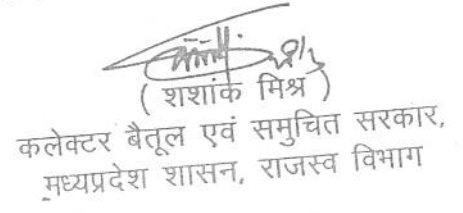 ( शशांक मिश्र )
कलेक्टर बैतूल एवं समुचित सरकार,
मध्यप्रदेश शासन, राजस्व विभाग